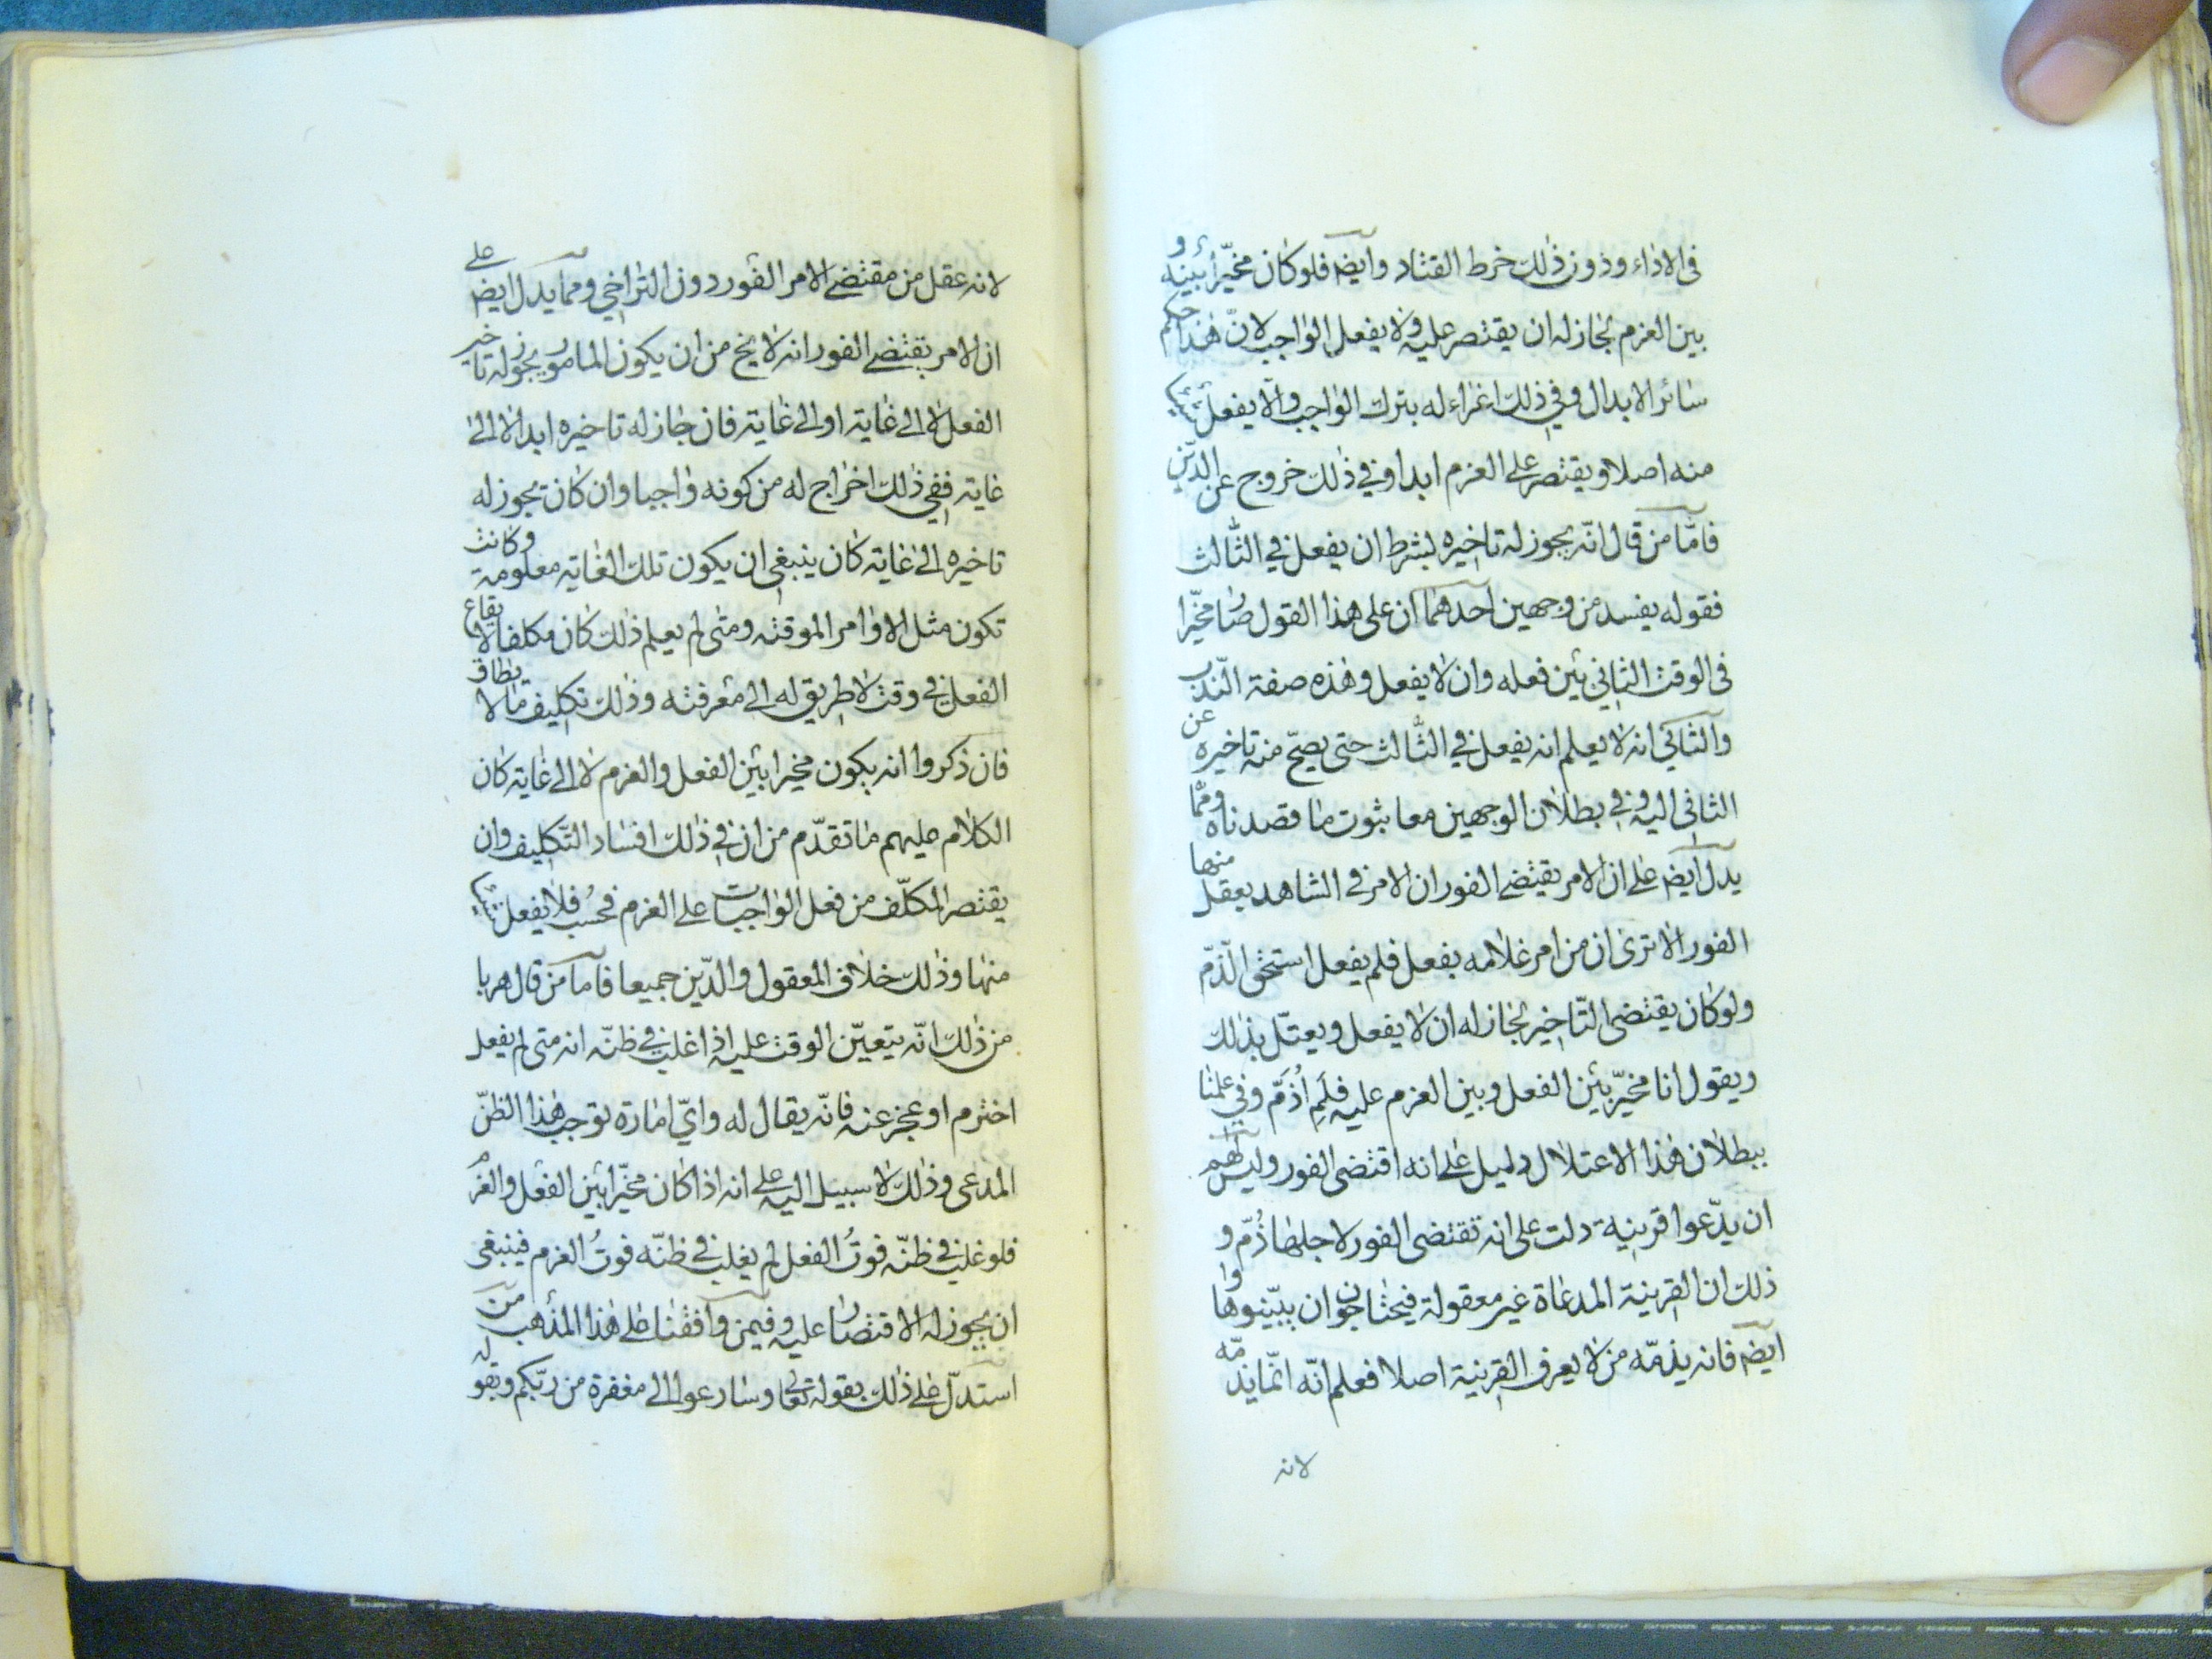 فى الاداء ودون ذلك خرط القتاد وايضه فلو كان مخيّرا بينه و
بين العزم لجاز له ان يقتصر عليه ولا يفعل الواجب لانّ هذا حكم
سائر الابدال وفي ذلك اغراء له بترك الواجب والّا يفعل شيئا
منه اصلا ويقتصر على العزم ابدا وفي ذلك خروج عن الدّين
فامّا من قال انّه يجوز له تاخيره بشرط ان يفعل في الثّالث
فقوله يفسد من وجهين احدهما ان على هذا القول صار مخيّرا
فى الوقت الثاني بين فعله وان لا يفعل وهذه صفة النّدب
والثاني انه لا يعلم انه يفعل في الثّالث حتى يصحّ منه تاخيره عن
الثاني اليه وفي بطلان الوجهين معا ثبوت ما قصدناه وممّا
يدل ايضه على ان الامر يقتضي الفور ان الامر في الشاهد يعقل منها
الفور الا ترى ان من امر غلامه بفعل فلم يفعل استحق الذّمّ
ولو كان يقتضى التّاخير لجاز له ان لا يفعل ويعتلّ بذلك
ويقول انا مخيّر بين الفعل وبين العزم عليه فلم اُذَمّ وفي علمنا
ببطلان هذا الاعتلال دليل على انه اقتضى الفور وليس لهم
ان يدّعوا قرينة دلت على انه تقتضى الفور لاجلها ذُمّ و
ذلك ان القرينة المدعاة غير معقولة فيحتاجون ان يبيّنوها وا
ايضه فانه يذمّه من لا يعرف القرينة اصلا فعلم انّه انّما يذمّه
لانه
لانه عقل من مقتضى الامر الفور دون التراخي ومما يدل ايضه على
ان الامر يقتضي الفور انه لا يخ من ان يكون المامور يجوز له تاخير
الفعل لا الى غاية او الى غاية فان جاز له تاخيره ابدا لا الى
غاية ففي ذلك اخراج له من كونه واجبا وان كان يجوز له
تاخيره الى غاية كان ينبغي ان يكون تلك الغاية معلومة وكانت
تكون مثل الاوامر الموقته ومتى لم يعلم ذلك كان مكلفا لايقاع
الفعل في وقت لا طريق له الى معرفته وذلك تكليف ما لا يطاق
فان ذكروا انه يكون مخيرا بين الفعل والعزم لا الى غاية كان
الكلام عليهم ما تقدّم من ان في ذلك افساد التّكليف وان
يقتصر المكلّف من فعل الواجبات على العزم فحسبُ فلا يفعل شيئا
منها وذلك خلاف المعقول والدّين جميعا فاما من قال هربا
من ذلك انّه يتعيّن الوقت عليه اذا غلب في ظنّه انه متى لم يفعل
اخترم او عجز عنه فانّه يقال له وايّ امارة توجب هذا الظنّ
المدعى وذلك لا سبيل اليه على انه اذا كان مخيّرا بين الفعل والعزم
فلو غلب في ظنّه فوتُ الفعل لم يغلب في ظنّه فوتُ العزم فينبغى
ان يجوز له الاقتصار عليه وفيمن وافقنا على هذا المذهب من
استدلّ على ذلك بقوله تعالى وسارعوا الى مغفرة من ربّكم وبقوله